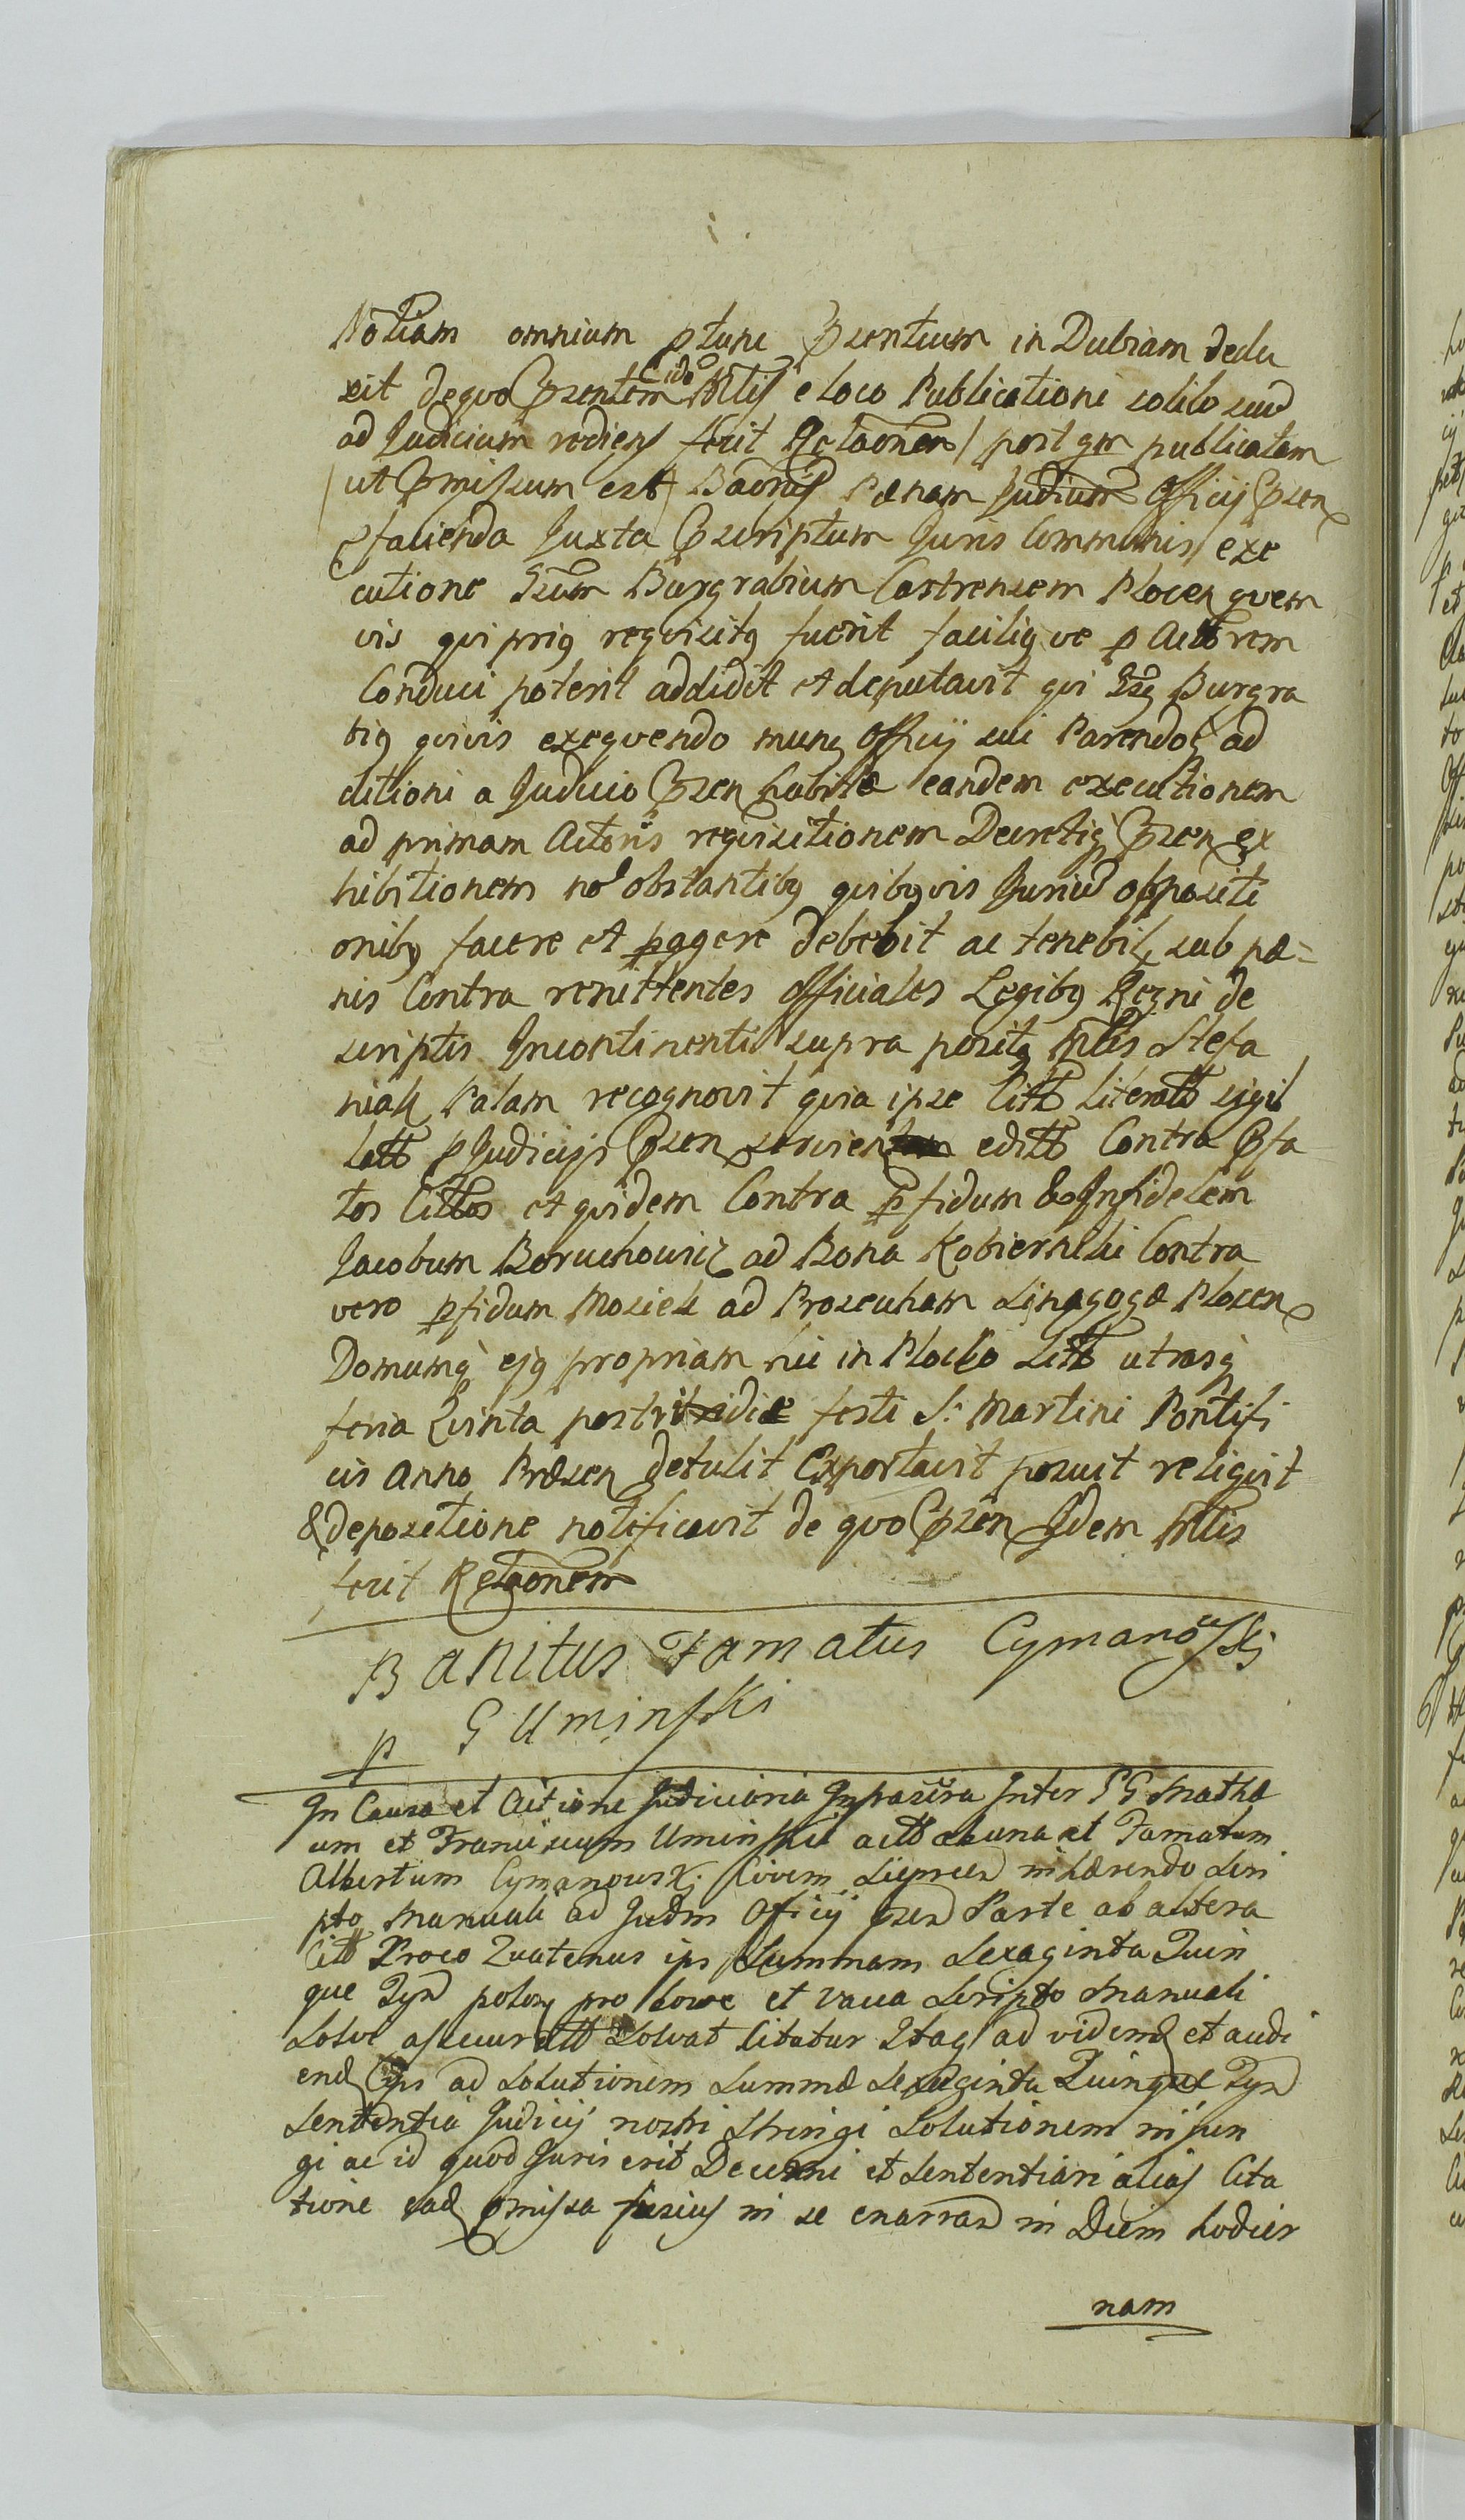 Notiam omnium ptunc Pzentium in Dubiam dedu
xit de quo Pzentem Mtis e loco Publicationi solito
ad Judicium rediens fecit Relaonem / post qm publicatam
ut Pmissum est Baonis Pænam Judium Officij Pzen
pfacienda Juxta Pscriptum Juris Communis exe
cutione Burgrabium Castrensem Plocen quem
vis qui prig reqvisitg fuerit facilig ve p Acttorem
Conduci poterit addidit et deputavit qvi Burgra
big qvivis exeqvendo mung Officij sui Parendoq ad
ditioni a Judicio Pzen habitæ eandem executionem
ad primam Actoris reqvisitionem Decretiq Pzen ex
hibitionem no obstantibg qvibgvis Juriu oppositi
onibg facere et pagere debebit ac tenebit sub pæ=
nis Contra renittentes Officiales Legibg Regni de
scriptis Incontinenti supra positg Mtis Stefa
niak Palam recognovit qvia ipse Citt literatt sigil
latt p Judicijs Pzen servien editt Contra Pfa
tos Cittos et qvidem Contra pfidum & Infidelem
Jacobum Boruchowicz ad Bona Kobiernihi Contra
vero pfidum Mosiek ad Prozeucham Sinagogæ Plocen
Domumq ejg propriam hic in Plocko Sitt utrasq
feria Qvinta postridie festi S: Martini Pontifi
cis Anno Præsen detulit Exportavit posuit reliqvit
& depositione notificavit de qvo Pzen Idem Mtis
fecit Relaonem
Banitus Famatus Cymanowskj
p G Uminski
In Causa et Actione Judiciaria Inter GG Mathæ
um et Franciscum Uminskie actt ab una et Famatum
Albertum Cymanowskj Civem Sieprcen inhærendo Scri
pto Manuali ad Judm Officij Pzen Parte ab altera
Citt Proco Quatenus ips Summam Sexaginta Quin
que Tyn polon pro bove et vaca Scripto Manuali
Solvi assecuratt Solvat Citatur Itaq ad videnda et audi
end ips ad Solutionem Summæ Sexaginta Quinque Tyn
Sententia Judicij nostri Stringi Solutionem injun
gi ac id quod Juris erit Decerni et Sententiari alias Cita
tione ead pmissa fusius in se enarran in Diem hodier
nam